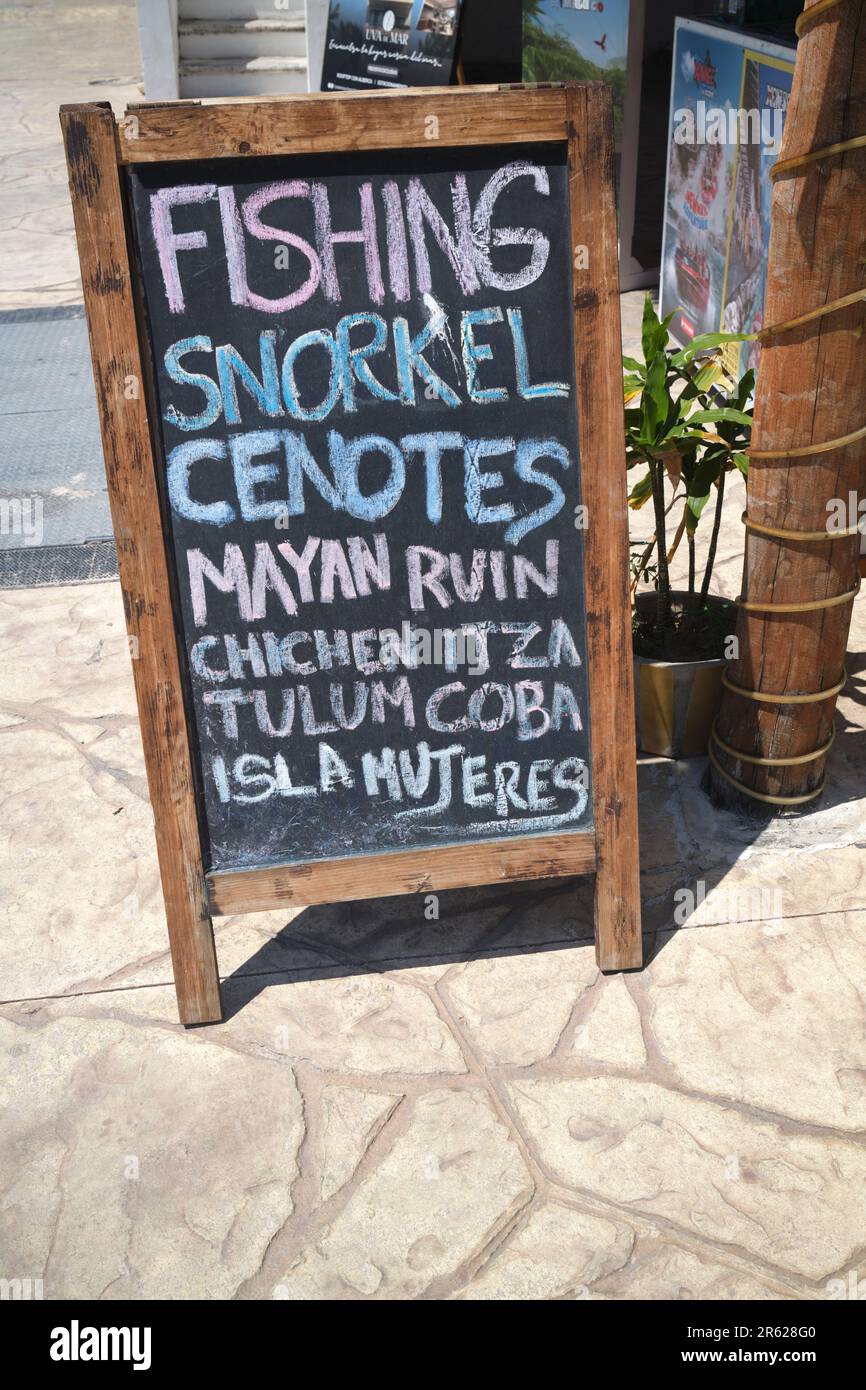 UVA DEL MAR
FISHING
SNORKEL
CENOTES
MAYAN RUIN
CHICHEN ITZA
TULUM COBA
ISLA MUJERES
alamy
Image ID: 2R628G0
www.alamy.com